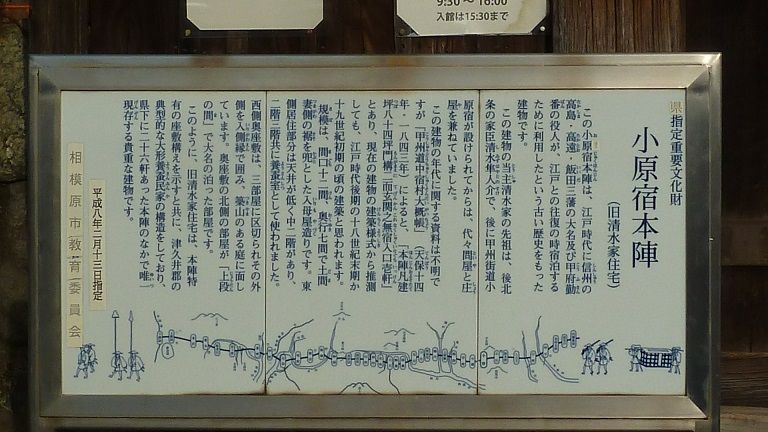 9:30 ~ 16:00
入館は15:30まで
県指定重要文化財
小原宿本陣
(旧清水家住宅)
この小原宿本陣は、江戸時代に信州の
高島・高遠・飯田三藩の大名及び甲府勤
番の役人が、江戸との往復の時宿泊する
ために利用したという古い歴史をもった
建物です。
この建物の当主清水家の先祖は、後北
条の家臣清水隼人介で、後に甲州街道小
原宿が設けられてからは、代々問屋と庄
屋を兼ねていました。
この建物の年代に関する資料は不明で
すが「甲州道中宿村大概帳」(天保十四
年・一八四三年)によると、「本陣凡建
坪八十四坪門構ニ而玄関之無宿入口壱軒」
とあり、現在の建物の建築様式から推測
しても、江戸時代後期の十八世紀末期か
十九世紀初期の頃の建築と思われます。
規模は、間口十二間、奥行七間で土間
妻側の裾を兜とした入母屋造りです。東
側居住部分は天井が低く中二階があり、
二階三階共に養蚕室として使われました。
西側奥座敷は、三部屋に区切られその外
側を入側縁で囲み、築山のある庭に面し
ています。奥座敷の北側の部屋が「上段
の間」で大名の泊った部屋です。
このように、旧清水家住宅は、本陣特
有の座敷構えを示すと共に、津久井郡の
典型的な大形養蚕民家の構造をしており、
県下に二十六軒あった本陣のなかで唯一
現存する貴重な建物です。
平成八年二月十三日指定
相模原市教育委員会